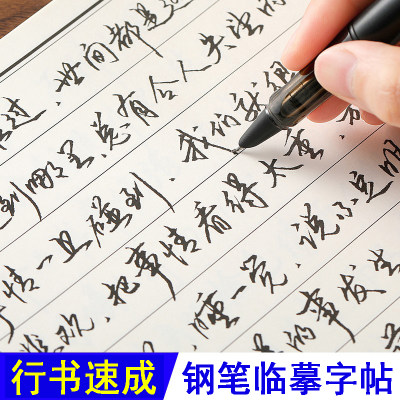 过，世间都是
到哪里总有令人失望的
情一旦碰到，我们就很
欢，把事情看得太重，
睡一觉，说不定明
的事发生
行书速成 钢笔临摹字帖